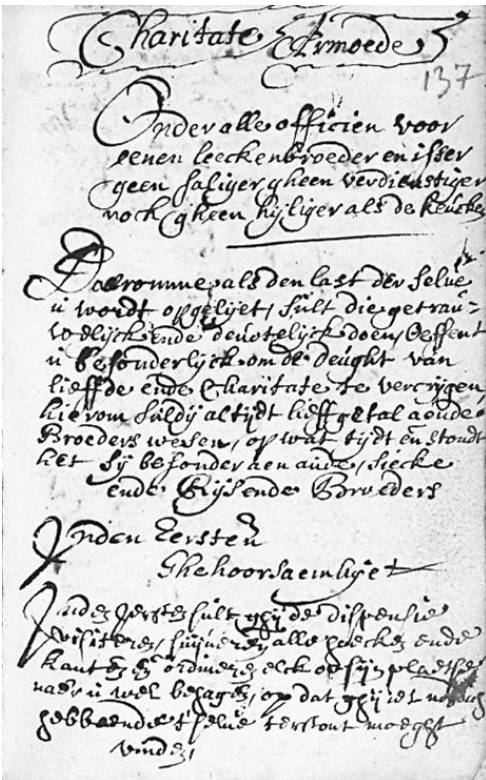 Charitate Armoede
137
Onder alle officien voor
eenen leeckenbroeder en isser
geen saliger gheen verdienstiger
noch gheen hyliger als de keucken
Daeromme als den last der selve
u wordt opgeleyt, sult die getrau-
welijck ende devotelijck doen, Oeffent
u besonderlijck om de deught van
lieffde ende Charitate te vercrijgen,
hierom suldij altijdt lieffgetal aende
Broeders wesen, op wat tijdt en stondt
het sij besonder aen aude, siecke
ende Rijsende Broeders
Inden Eersten
Ghehoorsaemheijt
Inden Iersten sult ghij de dispensie
visiteren, suijveren alle hoecken ende
kanten en ordineren elck op sijn plaetse
naer u wel behagen, op dat ghij iet
hebbende t'selve terstont moeght
vinden,